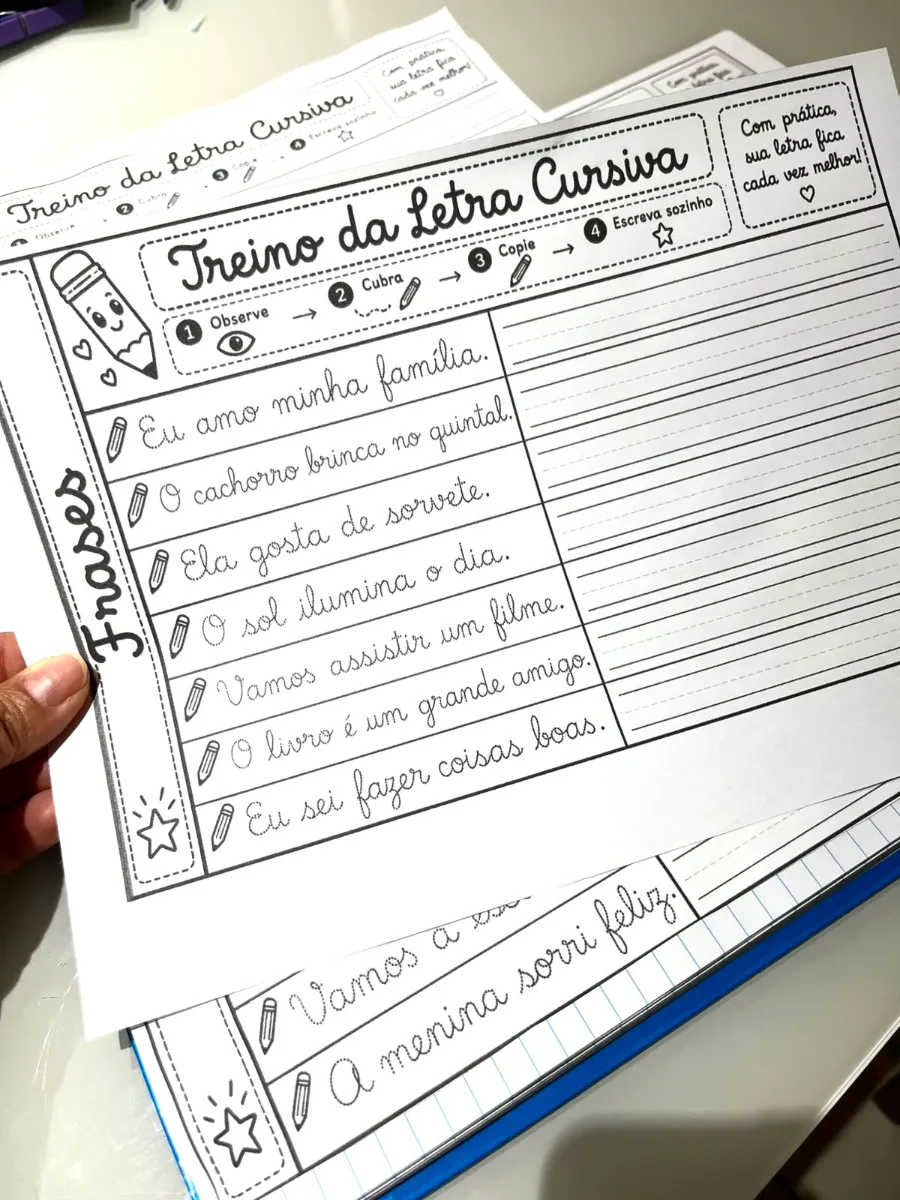 Treino da Letra Cursiva
Com prática,
sua letra fica
cada vez melhor!
1 Observe
2 Cubra
3 Copie
4 Escreva sozinho
Treino da Letra Cursiva
Com prática,
sua letra fica
cada vez melhor!
1 Observe → 2 Cubra → 3 Copie → 4 Escreva sozinho
Frases
Eu amo minha família.
O cachorro brinca no quintal.
Ela gosta de sorvete.
O sol ilumina o dia.
Vamos assistir um filme.
O livro é um grande amigo.
Eu sei fazer coisas boas.
Vamos à
A menina sorri feliz.